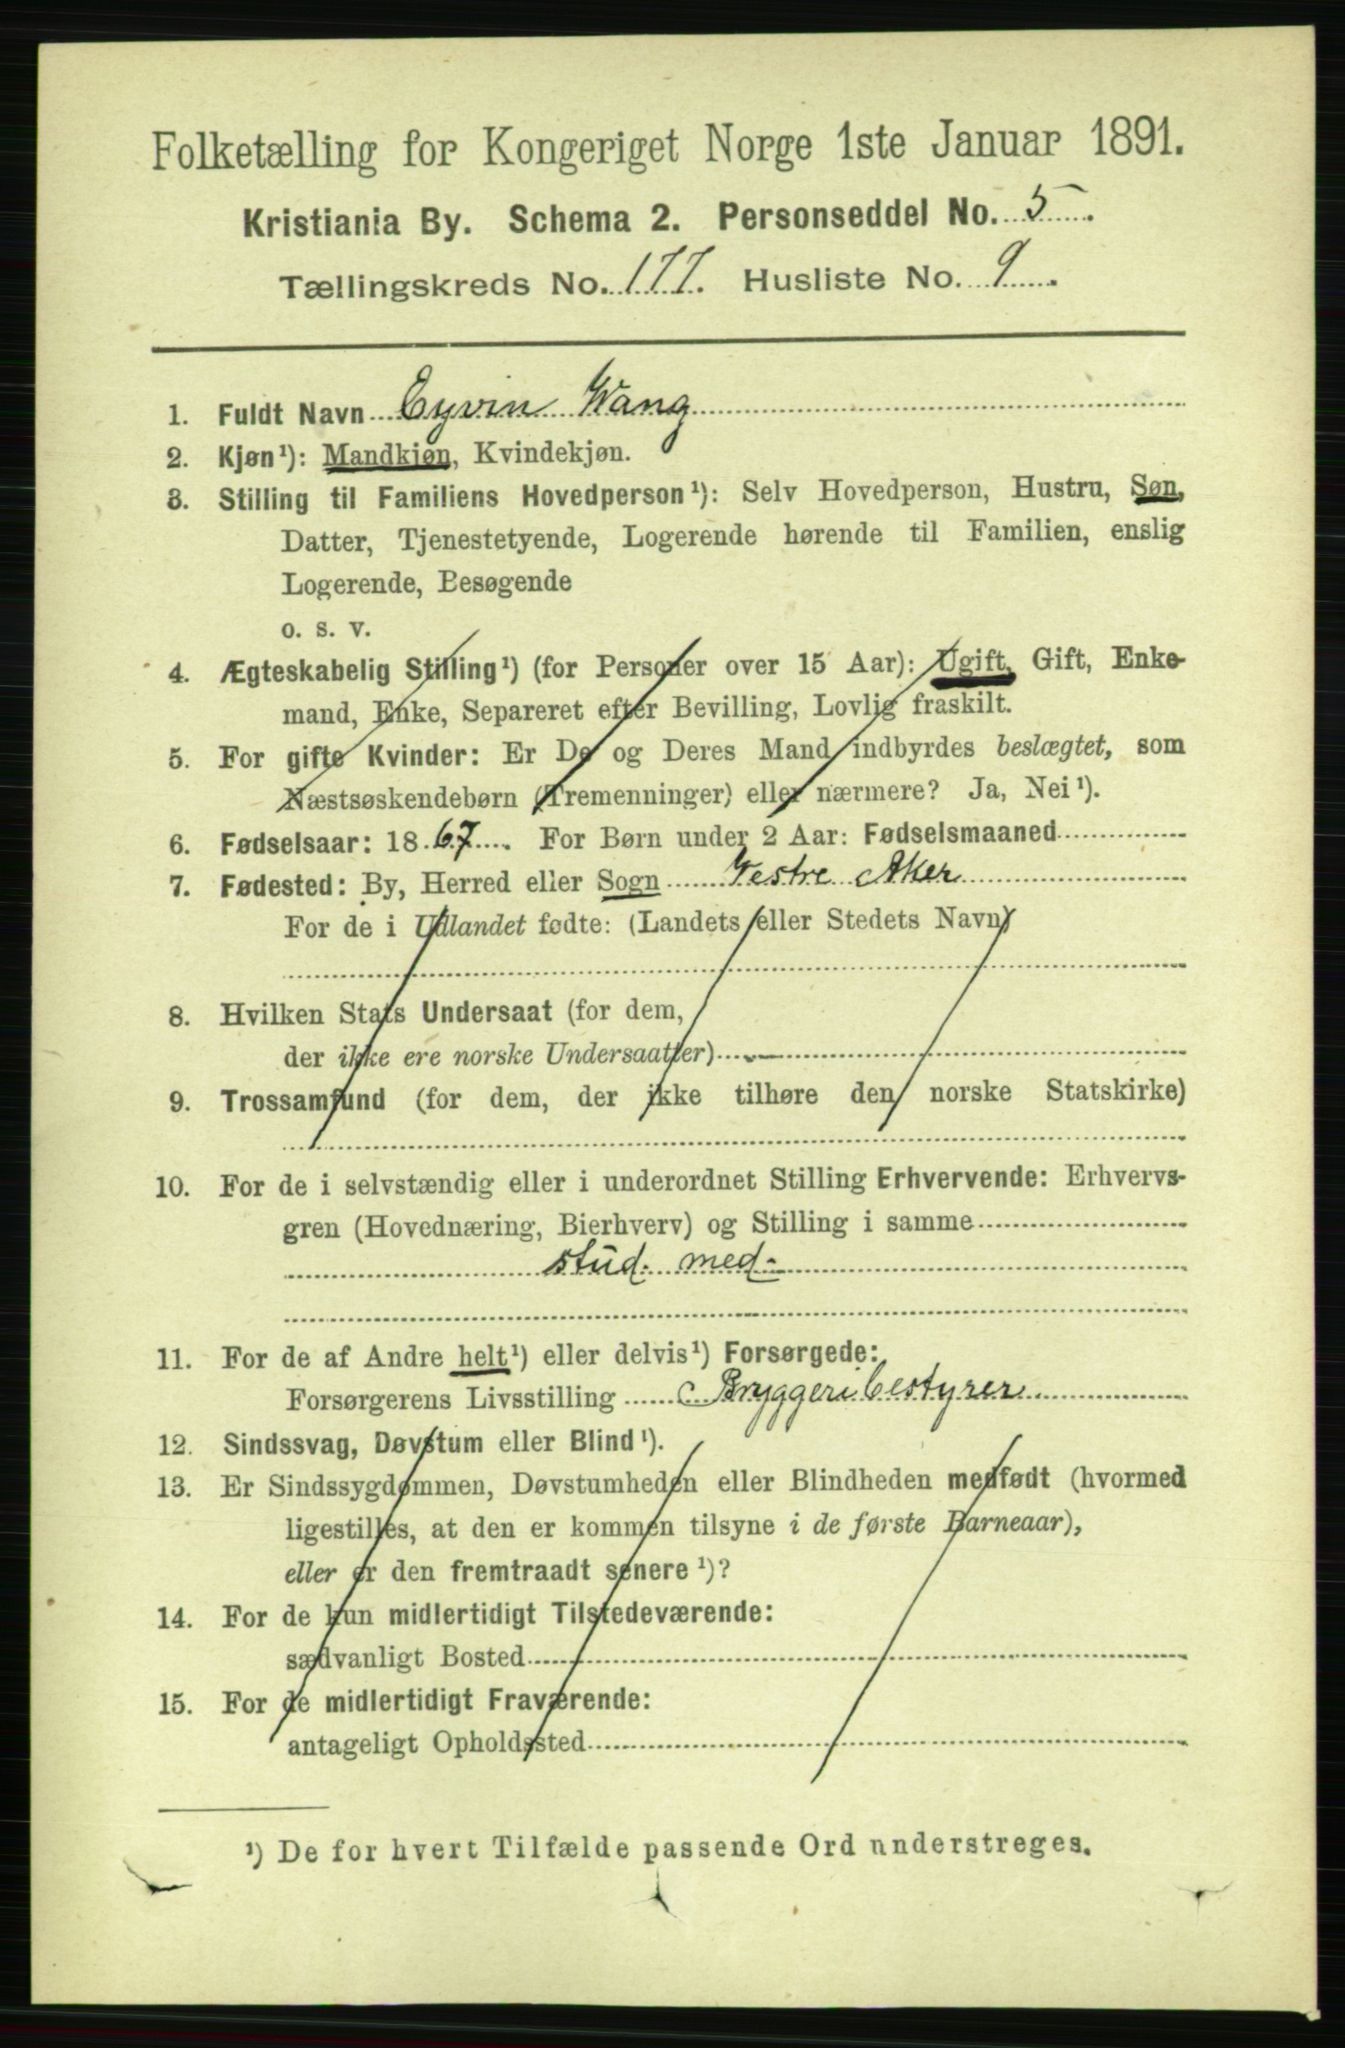 Folketælling for Kongeriget Norge 1ste Januar 1891.
Kristiania By. Schema 2. Personseddel No. 5.
Tællingskreds No. 177. Husliste No. 9.
1. Fuldt Navn Eyvin Wang
2. Kjøn¹): Mandkjøn, Kvindekjøn.
3. Stilling til Familiens Hovedperson¹): Selv Hovedperson, Hustru, Søn,
Datter, Tjenestetyende, Logerende hørende til Familien, enslig
Logerende, Besøgende
o. s. v.
4. Ægteskabelig Stilling¹) (for Personer over 15 Aar): Ugift, Gift, Enke-
mand, Enke, Separeret efter Bevilling, Lovlig fraskilt.
5. For gifte Kvinder: Er De og Deres Mand indbyrdes beslægtet, som
Næstsøskendebørn (Tremenninger) eller nærmere? Ja, Nei¹).
6. Fødselsaar: 1867. For Børn under 2 Aar: Fødselsmaaned
7. Fødested: By, Herred eller Sogn Vestre Aker
For de i Udlandet fødte: (Landets eller Stedets Navn)
8. Hvilken Stats Undersaat (for dem,
der ikke ere norske Undersaatter)
9. Trossamfund (for dem, der ikke tilhøre den norske Statskirke)
10. For de i selvstændig eller i underordnet Stilling Erhvervende: Erhvervs-
gren (Hovednæring, Bierhverv) og Stilling i samme
stud. med.
11. For de af Andre helt¹) eller delvis¹) Forsørgede:
Forsørgerens Livsstilling Bryggeribestyrer
12. Sindssvag, Døvstum eller Blind¹).
13. Er Sindssygdommen, Døvstumheden eller Blindheden medfødt (hvormed
ligestilles, at den er kommen tilsyne i de første Barneaar),
eller er den fremtraadt senere¹)?
14. For de kun midlertidigt Tilstedeværende:
sædvanligt Bosted
15. For de midlertidigt Fraværende:
antageligt Opholdssted
¹) De for hvert Tilfælde passende Ord understreges.